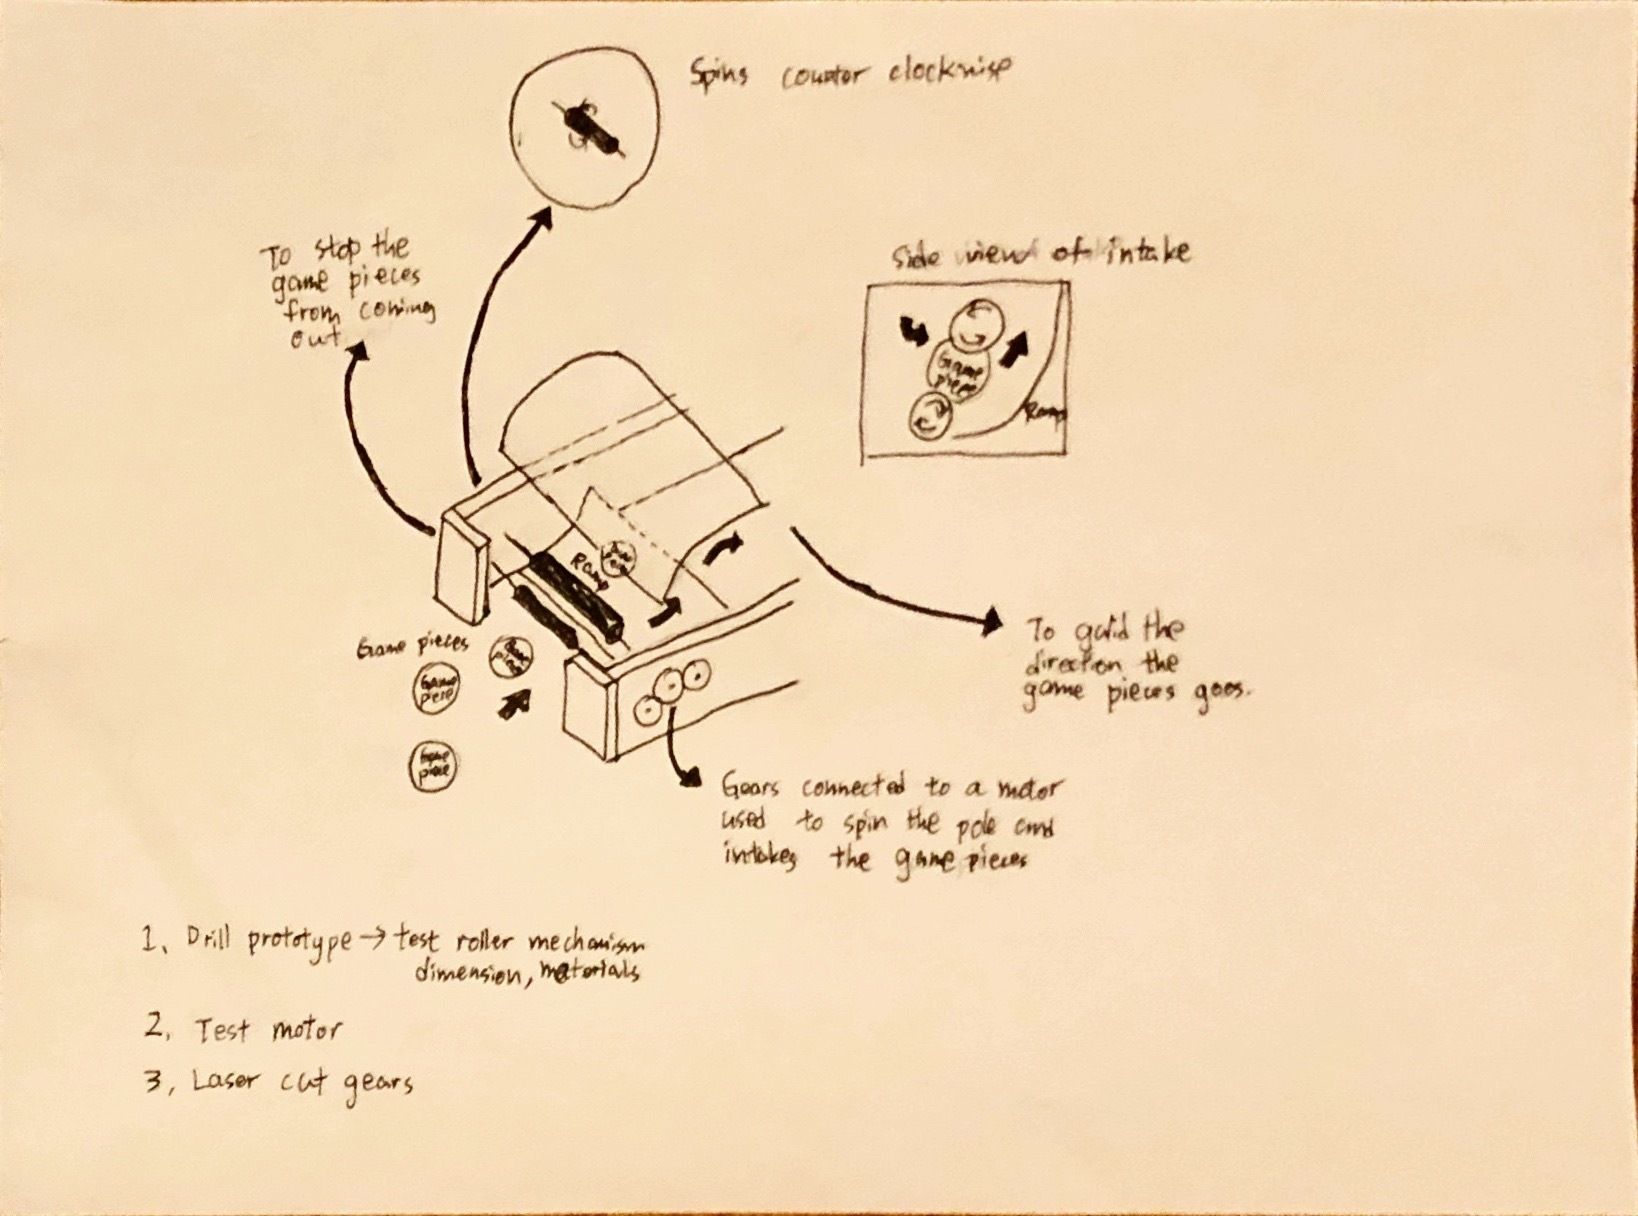 Spins counter clockwise
To stop the
game pieces
from coming
out
Side view of intake
Game
piece
Ramp
Ramp
Game pieces
Game
piece
Game
piece
To guid the
direction the
game pieces goes.
Gears connected to a motor
used to spin the pole and
intakes the game pieces
1. Drill prototype → test roller mechanism
dimension, materials
2. Test motor
3, Laser cut gears